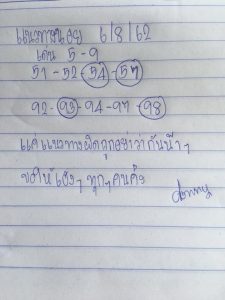 แนวทางหวย 6/8/62
เด่น 5-9
51-52-54-57
92-93-94-97-98
แค่แนวทางผิดถูกอย่าว่ากันน๊าๆ
ขอให้เฮงๆทุกๆคนค่ะ
donny